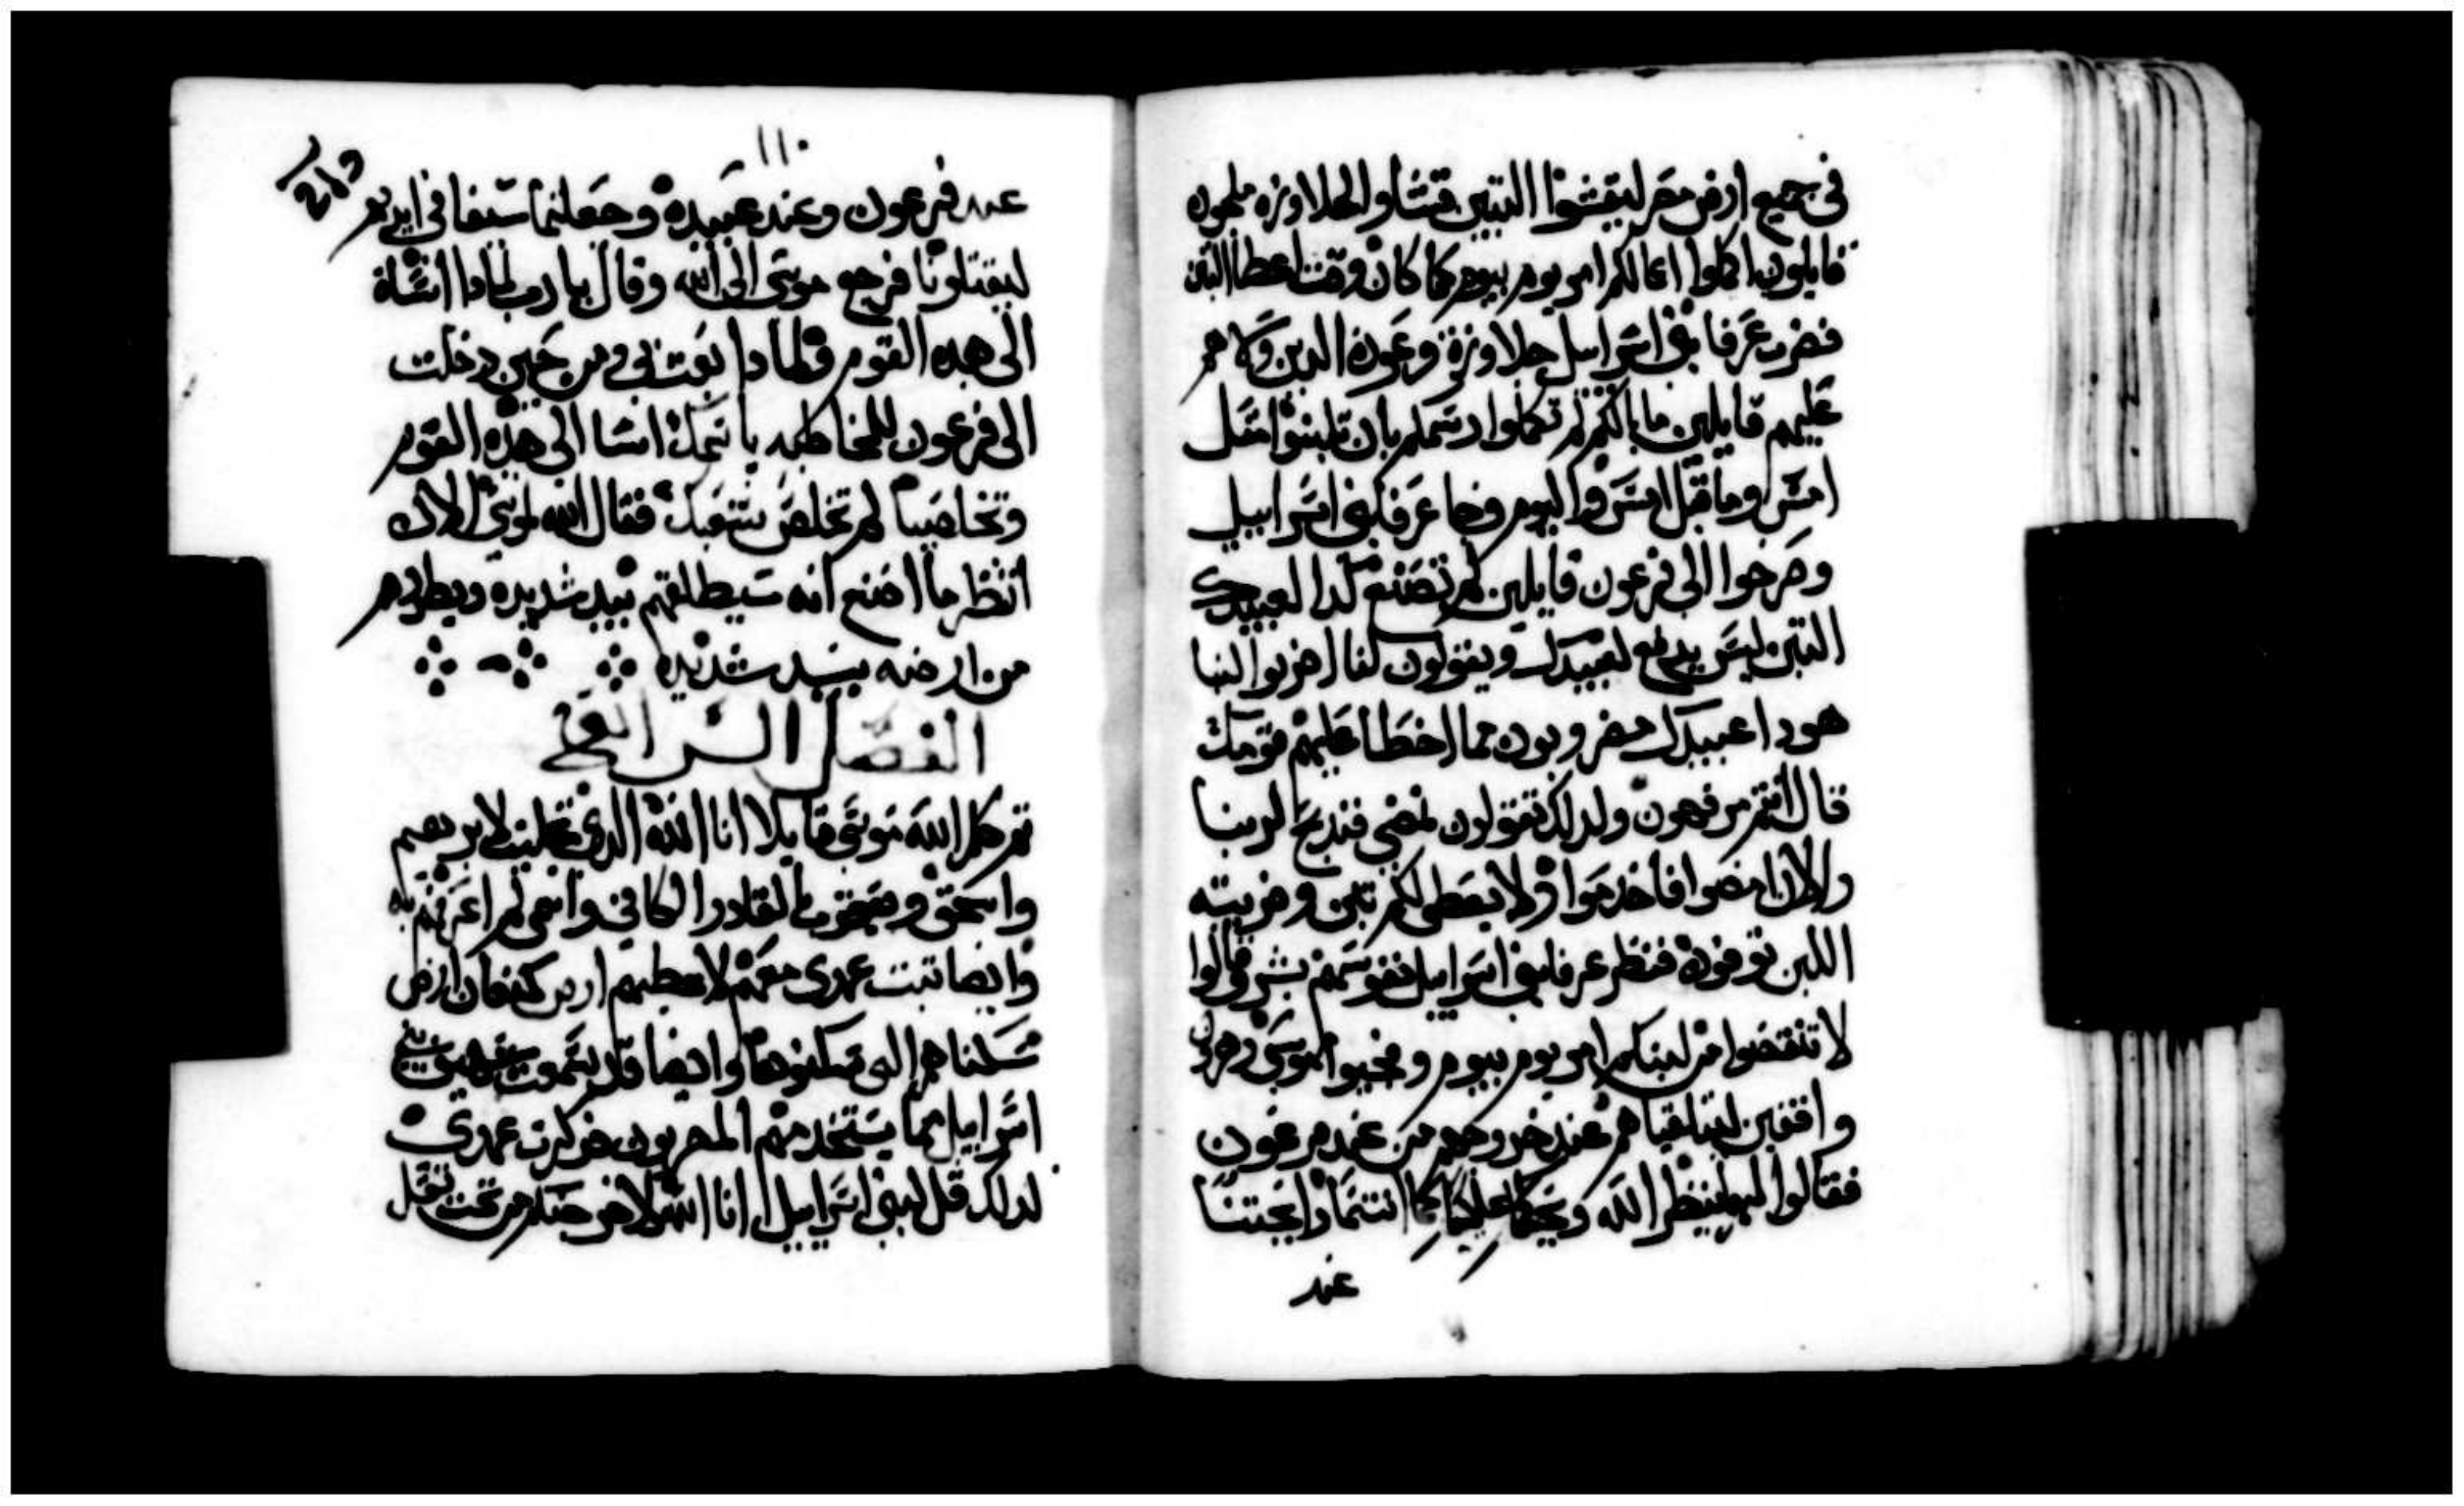 في جميع ارض مصر ليقشوا التبن قتشا والجلاوزه ملحون
قايلون اكملوا اعمالكم امر يوم بيوم كما كان وقت اعطا التبن
فضرب عرفا بني اسراييل جلاوزة فرعون الدين ولاهم
عليهم قايلين ما بالكم لم تكملوا رسمكم بان تلبنوا مثل
امس وما قبل امس واليوم فجا عرفا بني اسراييل
وصرخوا الي فرعون قايلين لم تصنع كدا لعبيدك
التبن ليس يدفع لعبيدك ويقولون لنا اضربوا لبنا
هودا عبيدك مضروبون مما اخطا عليهم قومك
قال انتم مرفهون ولدلك تقولون نمضي فندبح لربنا
والان امضوا فاخدموا ولا يعطي لكم تبن وضريبته
اللبن توفونه فنظر عرفا بني اسراييل نفوسهم بشر قالوا
لا تنقضوا من لبنكم امر يوم بيوم وفجيوا موسي وهرون
واقفين لتلقياهم عند خروجهم من عند فرعون
فقالوا لهما ينظر الله ويحكم عليكما كما انتنما رايحتنا
عند
١١٠
عند فرعون وعند عبيده وجعلتما سيفا في ايديهم
ليقتلونا فرجع موسي الي الله وقال يا رب لمادا اسات
الي هده القوم ولمادا بعت بي ومن حين دخلت
الي فرعون للمخاطبه باسمك اسا الي هده القوم
وتخاصيا لم تخلص شعبك فقال الله لموسي الان
انظر ما اصنع انه سيطلقهم بيد شديده ويطردهم
من ارضه بيد شديده
الفصل الرابع
تم كلم الله موسي قايلا انا الله الدي تجليت لابرهيم
واسحق ويعقوب القادر الكافي واسمي لم اعرفهم به
وايضا تبت عهدي معهم لاعطيهم ارض كنعان ارض
سكناهم التي سكنوها وايضا قد سمعت شهيق بني
اسراييل مما يستخدمهم المصريون فدكرت عهدي
لدلك قل لبني اسراييل انا الله لاخرجنكم من تحت ثقل